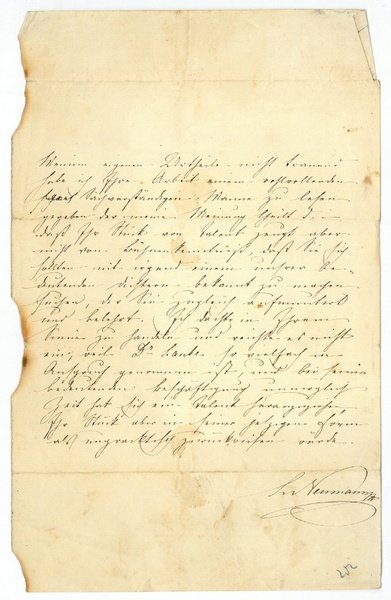 Meinem eigenen Urtheile nicht trauend
habe ich Ihre Arbeit einem wohlwollenden
Sachverständigen Manne zu lesen
gegeben der meine Meinung theilt d. –
daß Ihr Stück von Talent zeugt aber
nicht von Bühnenkenntniß, daß Sie sich
sollten mit irgend einem unsrer be-
deutenden Dichtern bekannt zu machen
suchen, der Sie zugleich aufmuntert
und belehrt. In dachte in Ihrem
Sinne zu handeln und reichte es nicht
ein, weil Dr Laube so vielfach in
Anspruch genommen ist, und bei seiner
bedeutenden Beschäftigung unmöglich
Zeit hat sich ein Talent heranzuziehen,
Ihr Stück aber in seiner jetzigen Form
als unpracktisch zurückweisen würde.
Neumann
252